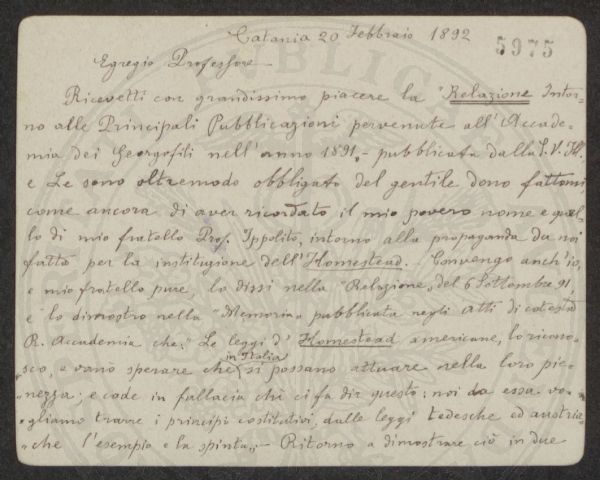 Catania 20 Febbraio 1892
5975
Egregio Professore —
Ricevetti con grandissimo piacere la "Relazione Intor-
no alle Principali Pubblicazioni pervenute all'Accade-
mia dei Georgofili nell'anno 1891„ - pubblicata dalla S. V. Ill.
e Le sono oltremodo obbligato del gentile dono fattomi
come ancora di aver ricordato il mio povero nome e quel-
lo di mio fratello Prof. Ippolito, intorno alla propaganda da noi
fatta per la instituzione dell'Homestead. – Convengo anch'io,
e mio fratello pure lo dissi nella "Relazione„ del 6 Settembre 91,
e lo dimostro nella "Memoria„ pubblicata negli Atti di cotesta
R. Accademia che "Le leggi d'Homestead americane, lo ricono-
„sco, è vano sperare che in Italia si possano attuare nella loro pie-
„nezza; e cade in fallacia chi ci fa dir questo; noi da essa vo-
„gliamo trarre i principi costitutivi, dalle leggi tedesche ed austria-
„che l'esempio e la spinta„; – Ritorno a dimostrare ciò in due